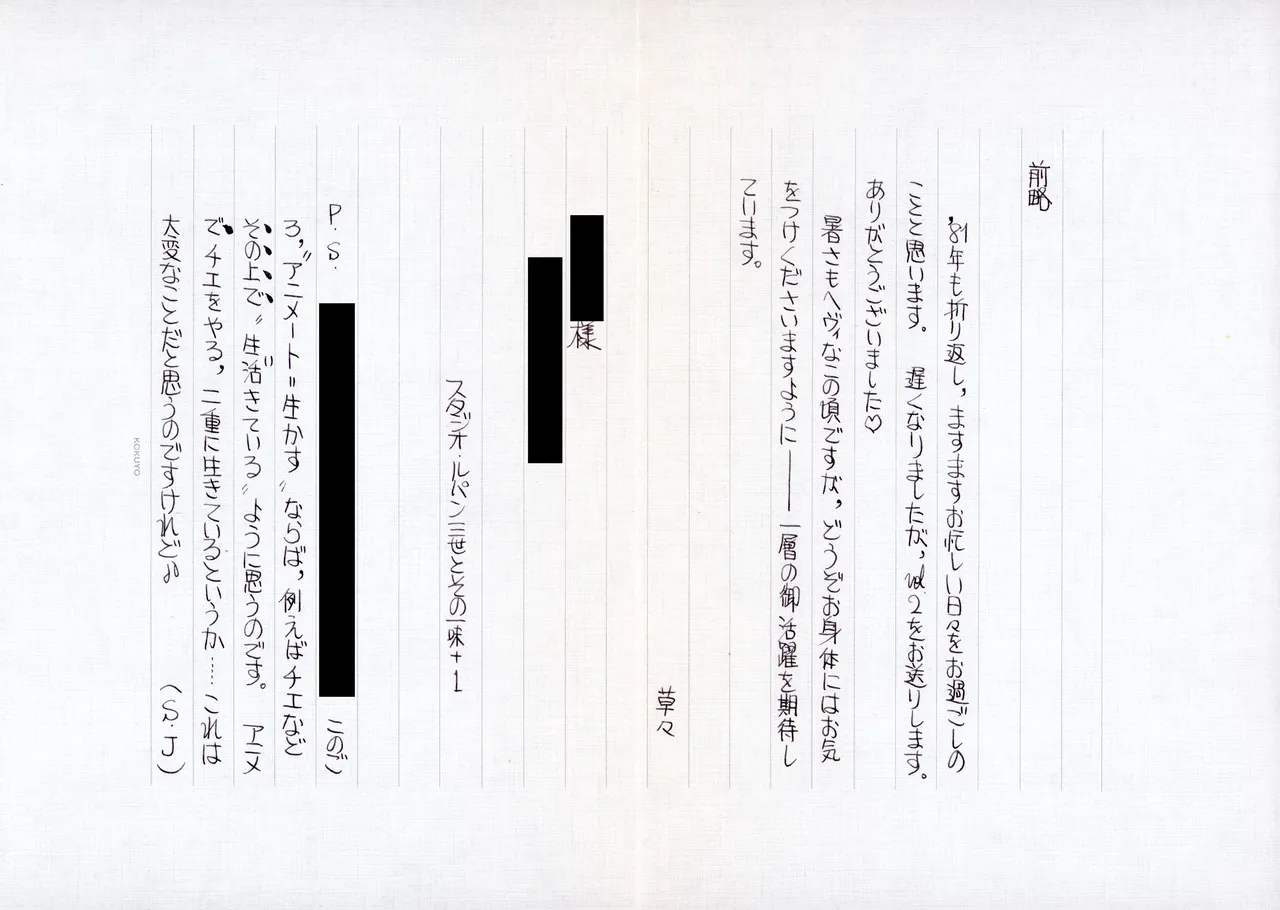 前略
'81年も折り返し，ますますお忙しい日々をお過ごしの
ことと思います。 遅くなりましたが，vol.2をお送りします。
ありがとうございました♡
暑さもヘヴィなこの頃ですが，どうぞお身体にはお気
をつけくださいますように――一層の御活躍を期待し
ています。
草々
様
スタジオ・ルパン三世とその一味+1
P.S.
このご
ろ，〝アニメート〟=生かす〟ならば，例えばチエなど
その上で〝生活きている〟ように思うのです。 アニメ
でチエをやる，二重に生きているというか……これは
大変なことだと思うのですけれど♪
(S.J)
KOKUYO